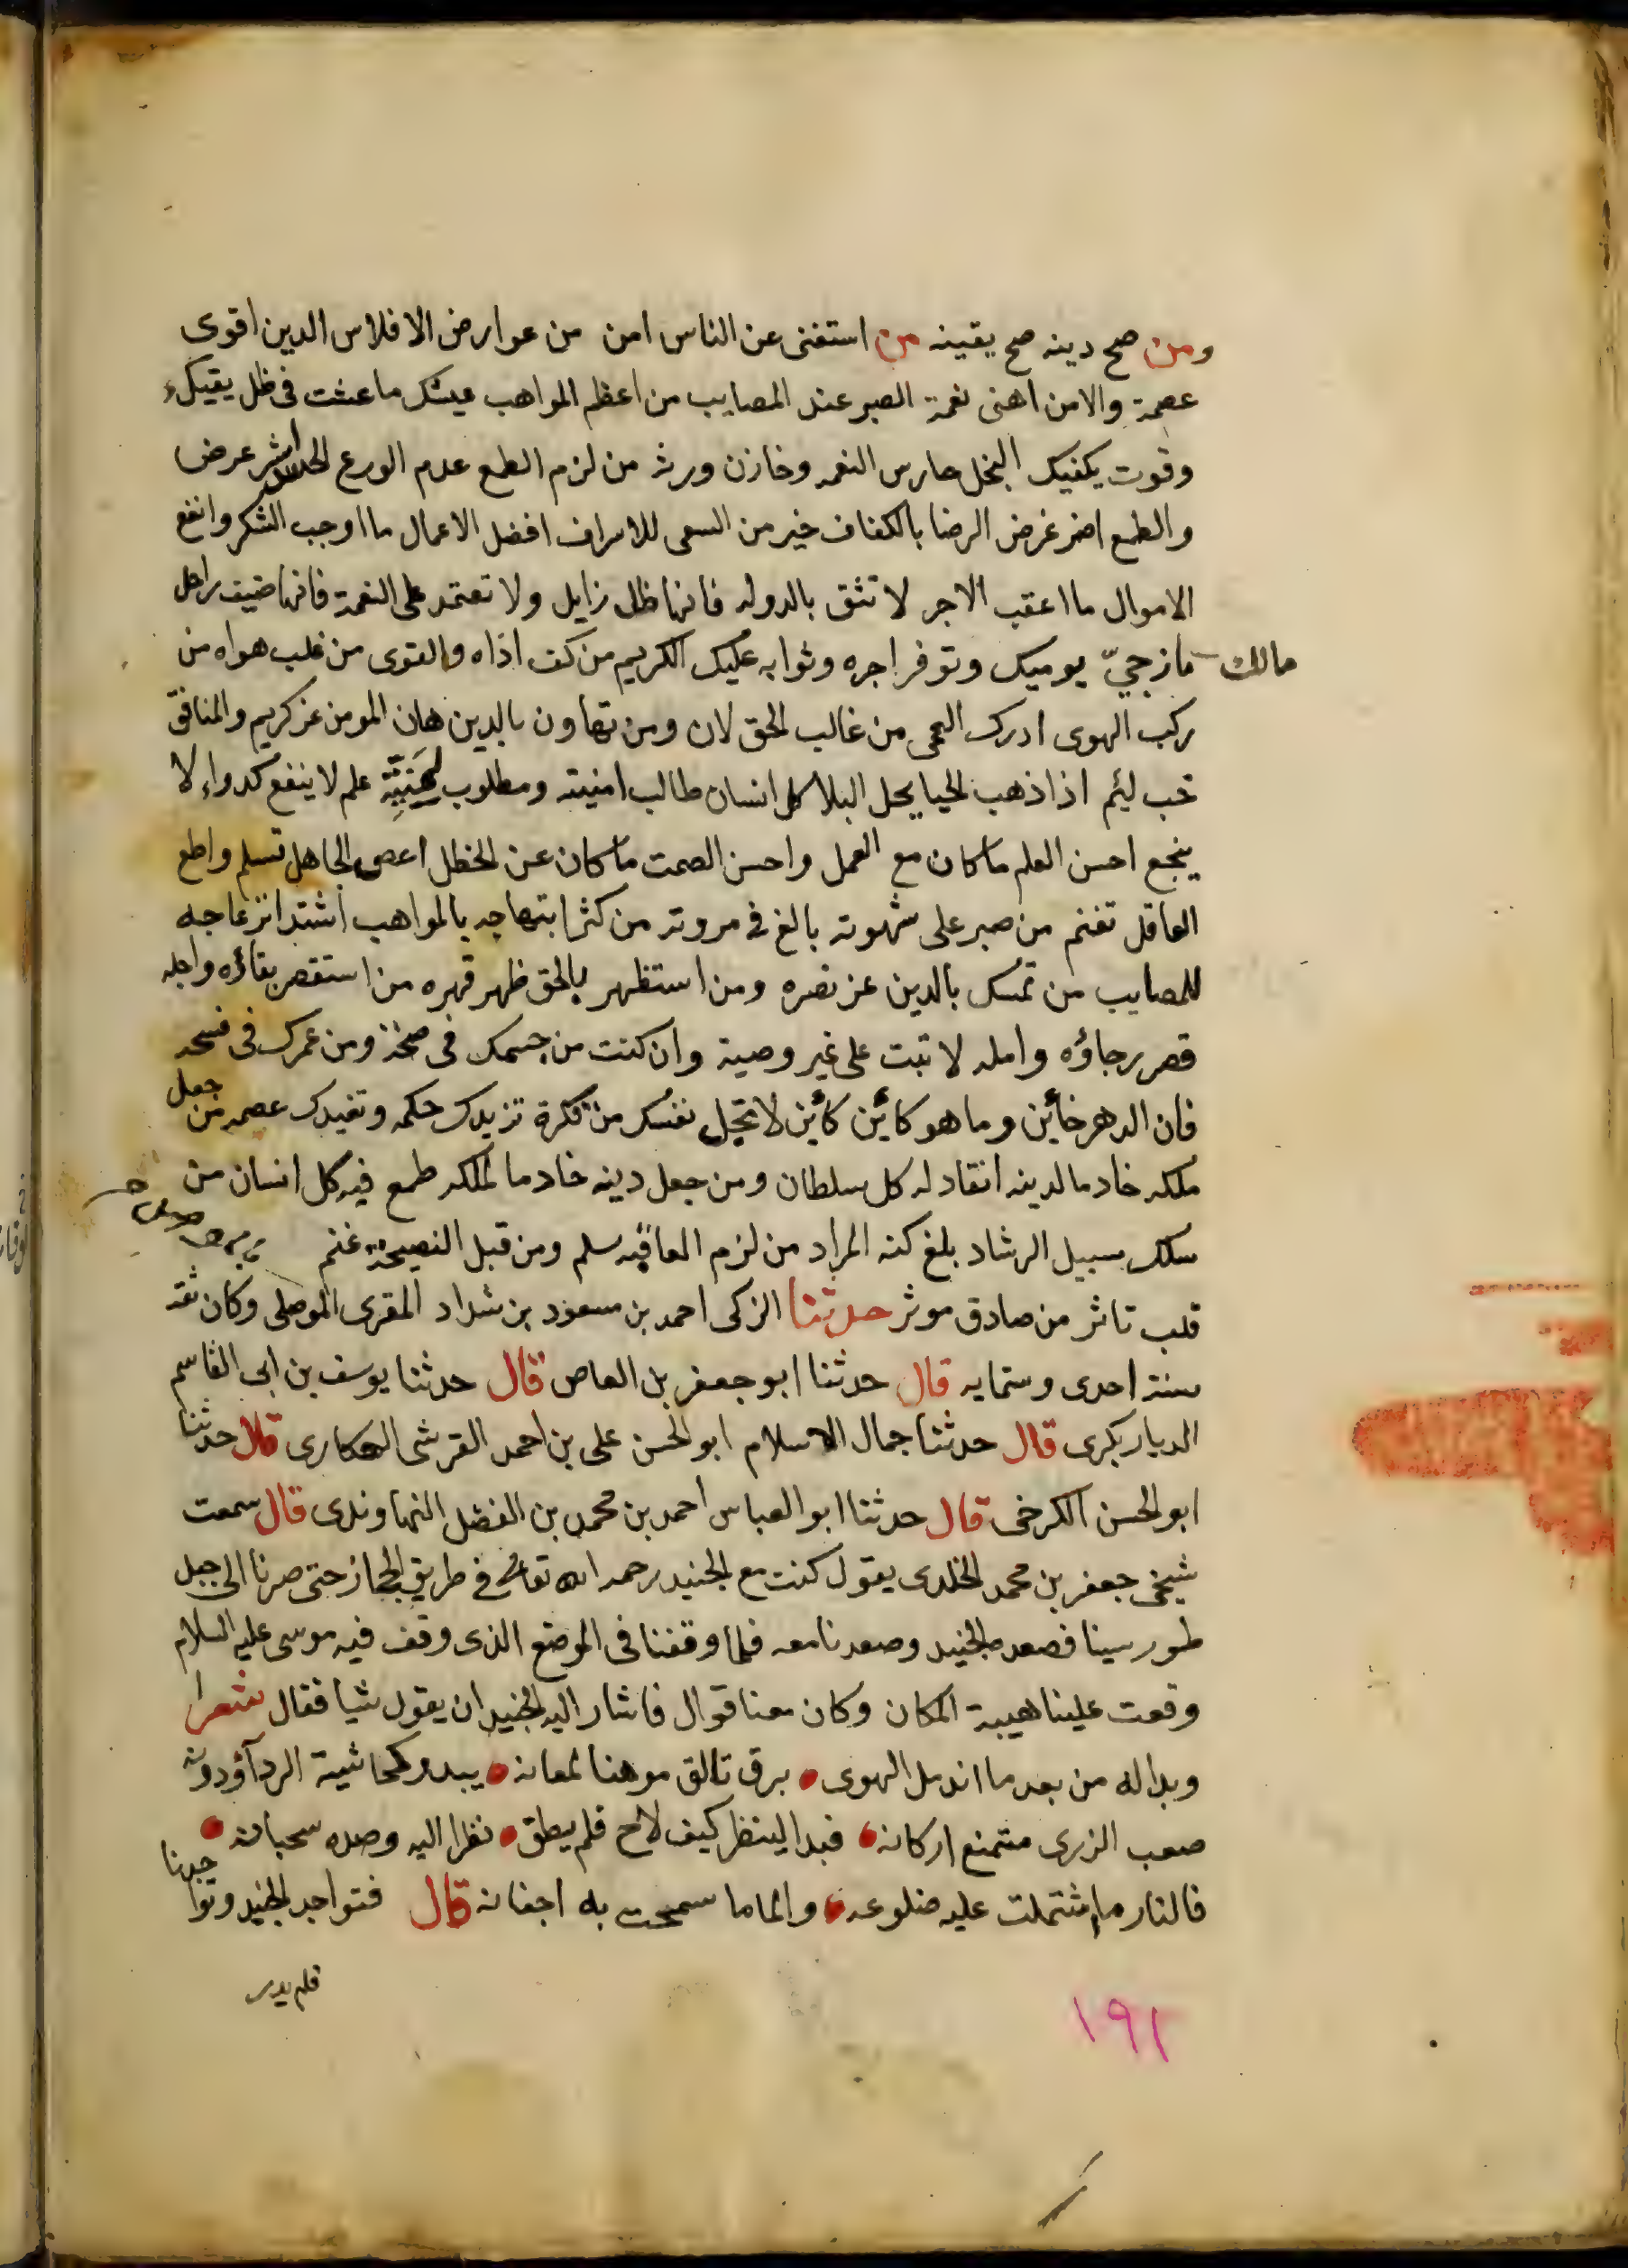 ومن صح دينه صح يقينه من استغنى عن الناس امن من عوارض الافلاس الدين اقوى
عصمة والامن اهنى نعمة الصبر عند المصايب من اعظم المواهب عيشك ما عشت فى ظل يقيك
وقوت يكفيك البخل حارس النعمه وخازن ورثه من لزم الطمع عدم الورع الحسد شر عرض
والطمع اضر غرض الرضا بالكفاف خير من السعى للاسراف افضل الاعمال ما اوجب الشكر وانفع
الاموال ما اعقب الاجر لا تثق بالدوله فانها ظل زايل ولا تعتمد على النعمة فانها ضيف راحل
مالك ما زجيّ يوميك وتوفر اجره وثوابه عليك الكريم من كف اذاه والقوى من غلب هواه من
ركب الهوى ادرك العمى من غالب الحق لان ومن تهاون بالدين هان المومن عز كريم والمنافق
خب ليئم اذا ذهب الحيا يحل البلا كل انسان طالب امنيته ومطلوب علم لا ينفع كدواء لا
ينجع احسن العلم ما كان مع العمل واحسن الصمت ما كان عن الخطل اعص الجاهل تسلم واطع
العاقل تغنم من صبر على شهوته بالغ فى مروته من كثر ابتهاجه بالمواهب اشتد انزعاجه
للمصايب من تمسك بالدين عز نصره ومن استظهر بالحق ظهر قهره من استقصر بقاؤه واجله
قصر رجاؤه وامله لا تبت على غير وصية وان كنت من جسمك فى صحة ومن عمرك فى فسحه
فان الدهر خائن وما هو كاين كائن لا تخل نفسك من فكرة تزيدك حكمه وتفيدك عصمه من جعل
ملكه خادما لدينه انقاد له كل سلطان ومن جعل دينه خادما لملكه طمع فيه كل انسان من
سلك سبيل الرشاد بلغ كنه المراد من لزم العافيه سلم ومن قبل النصيحة غنم
قلب تاثر من صادق موثر حدثنا الزكى احمد بن مسعود بن شداد المقرى الموصلى وكان ثقه
سنة احدى وستمايه قال حدثنا ابو جعفر بن العاص قال حدثنا يوسف بن ابى القاسم
الديار بكرى قال حدثنا جمال الاسلام ابو الحسن على بن احمد القرشى الهكارى قال حدثنا
ابو الحسن الكرخى قال حدثنا ابو العباس احمد بن محمد بن الفضل النهاوندى قال سمعت
شيخى جعفر بن محمد الخلدى يقول كنت مع الجنيد رحمه الله تعالى فى طريق الحجاز حتى صرنا الى جبل
طور سينا فصعد الجنيد وصعدنا معه فلما وقفنا فى الموضع الذى وقف فيه موسى عليه السلام
وقعت علينا هيبة المكان وكان معنا قوال فاشار اليه الجنيد ان يقول شيا فقال شعرا
وبدا له من بعد ما اندمل الهوى برق تالق موهنا لمعانه يبدو كحاشية الردآء ودونه
صعب الذرى متمنع اركانه فبدا لينظر كيف لاح فلم يطق نظرا اليه وصده سحبانه
فالنار ما اشتملت عليه ضلوعه والما ما سمحت به اجفانه قال فتواجد الجنيد وتواجدنا
فلم يدر
١٩١